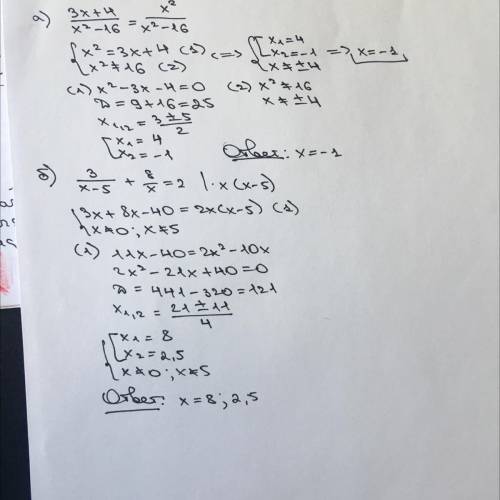 а) (3x+4)/(x²-16) = x²/(x²-16)
{ x² = 3x+4 (1) x² ≠ 16 (2) <=> { [ x₁=4 x₂=-1 x ≠ ±4 => x=-1
(1) x²-3x-4=0 (2) x² ≠ 16
D = 9+16=25 x ≠ ±4
x₁,₂ = (3±5)/2
[ x₁ = 4
x₂ = -1 Ответ: x=-1
б) 3/(x-5) + 8/x = 2 | · x(x-5)
{ 3x+8x-40=2x(x-5) (1)
x≠0; x≠5
(1) 11x-40=2x²-10x
2x²-21x+40=0
D=441-320=121
x₁,₂ = (21±11)/4
{ [ x₁ = 8
x₂ = 2,5
x≠0; x≠5
Ответ: x=8; 2,5